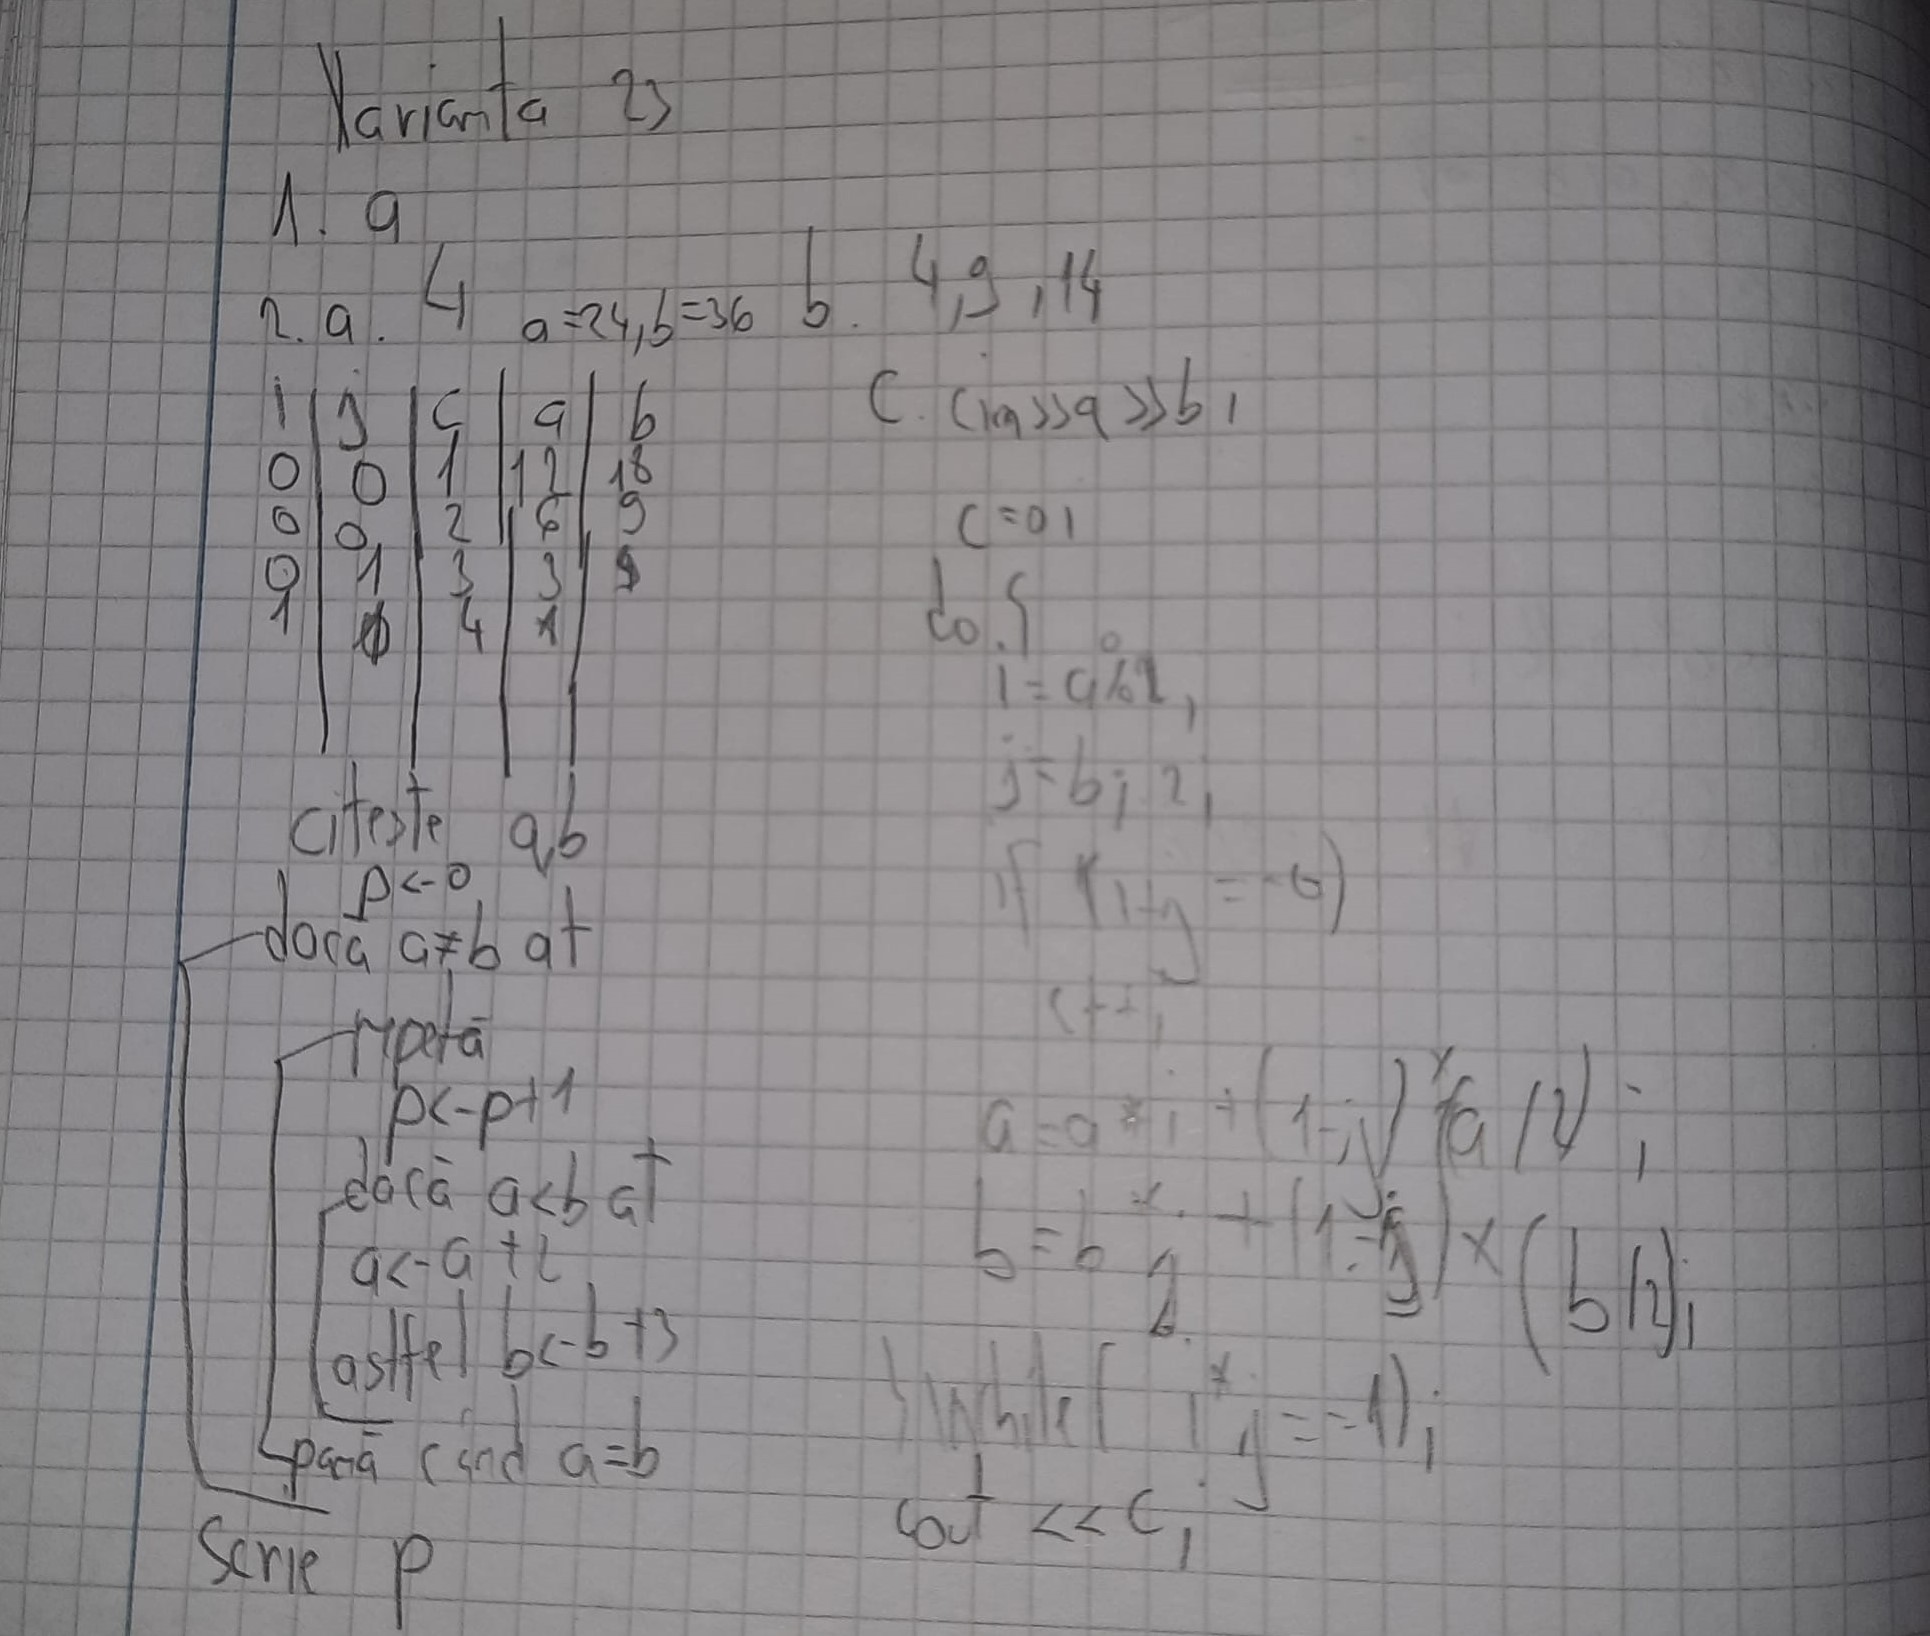 Varianta 23
1. a
2. a. 4 a=24, b=36
i j c a b
0 0 1 12 18
0 0 2 6 9
0 1 3 3 9
1 4 1
citeste a,b
p<-0
dacă a≠b at
repetă
p<-p+1
dacă a<b at
a<-a+2
astfel b<-b+3
pană cand a=b
Scrie p
b. 4,9,14
C. cin>>a>>b;
c=0;
do{
i=a%2;
j=b%2;
if (i+j==0)
c++;
a=a*i+(1-i)*(a/2);
b=b*j+(1-j)*(b/2);
}while( i*j==1);
cout<<c;